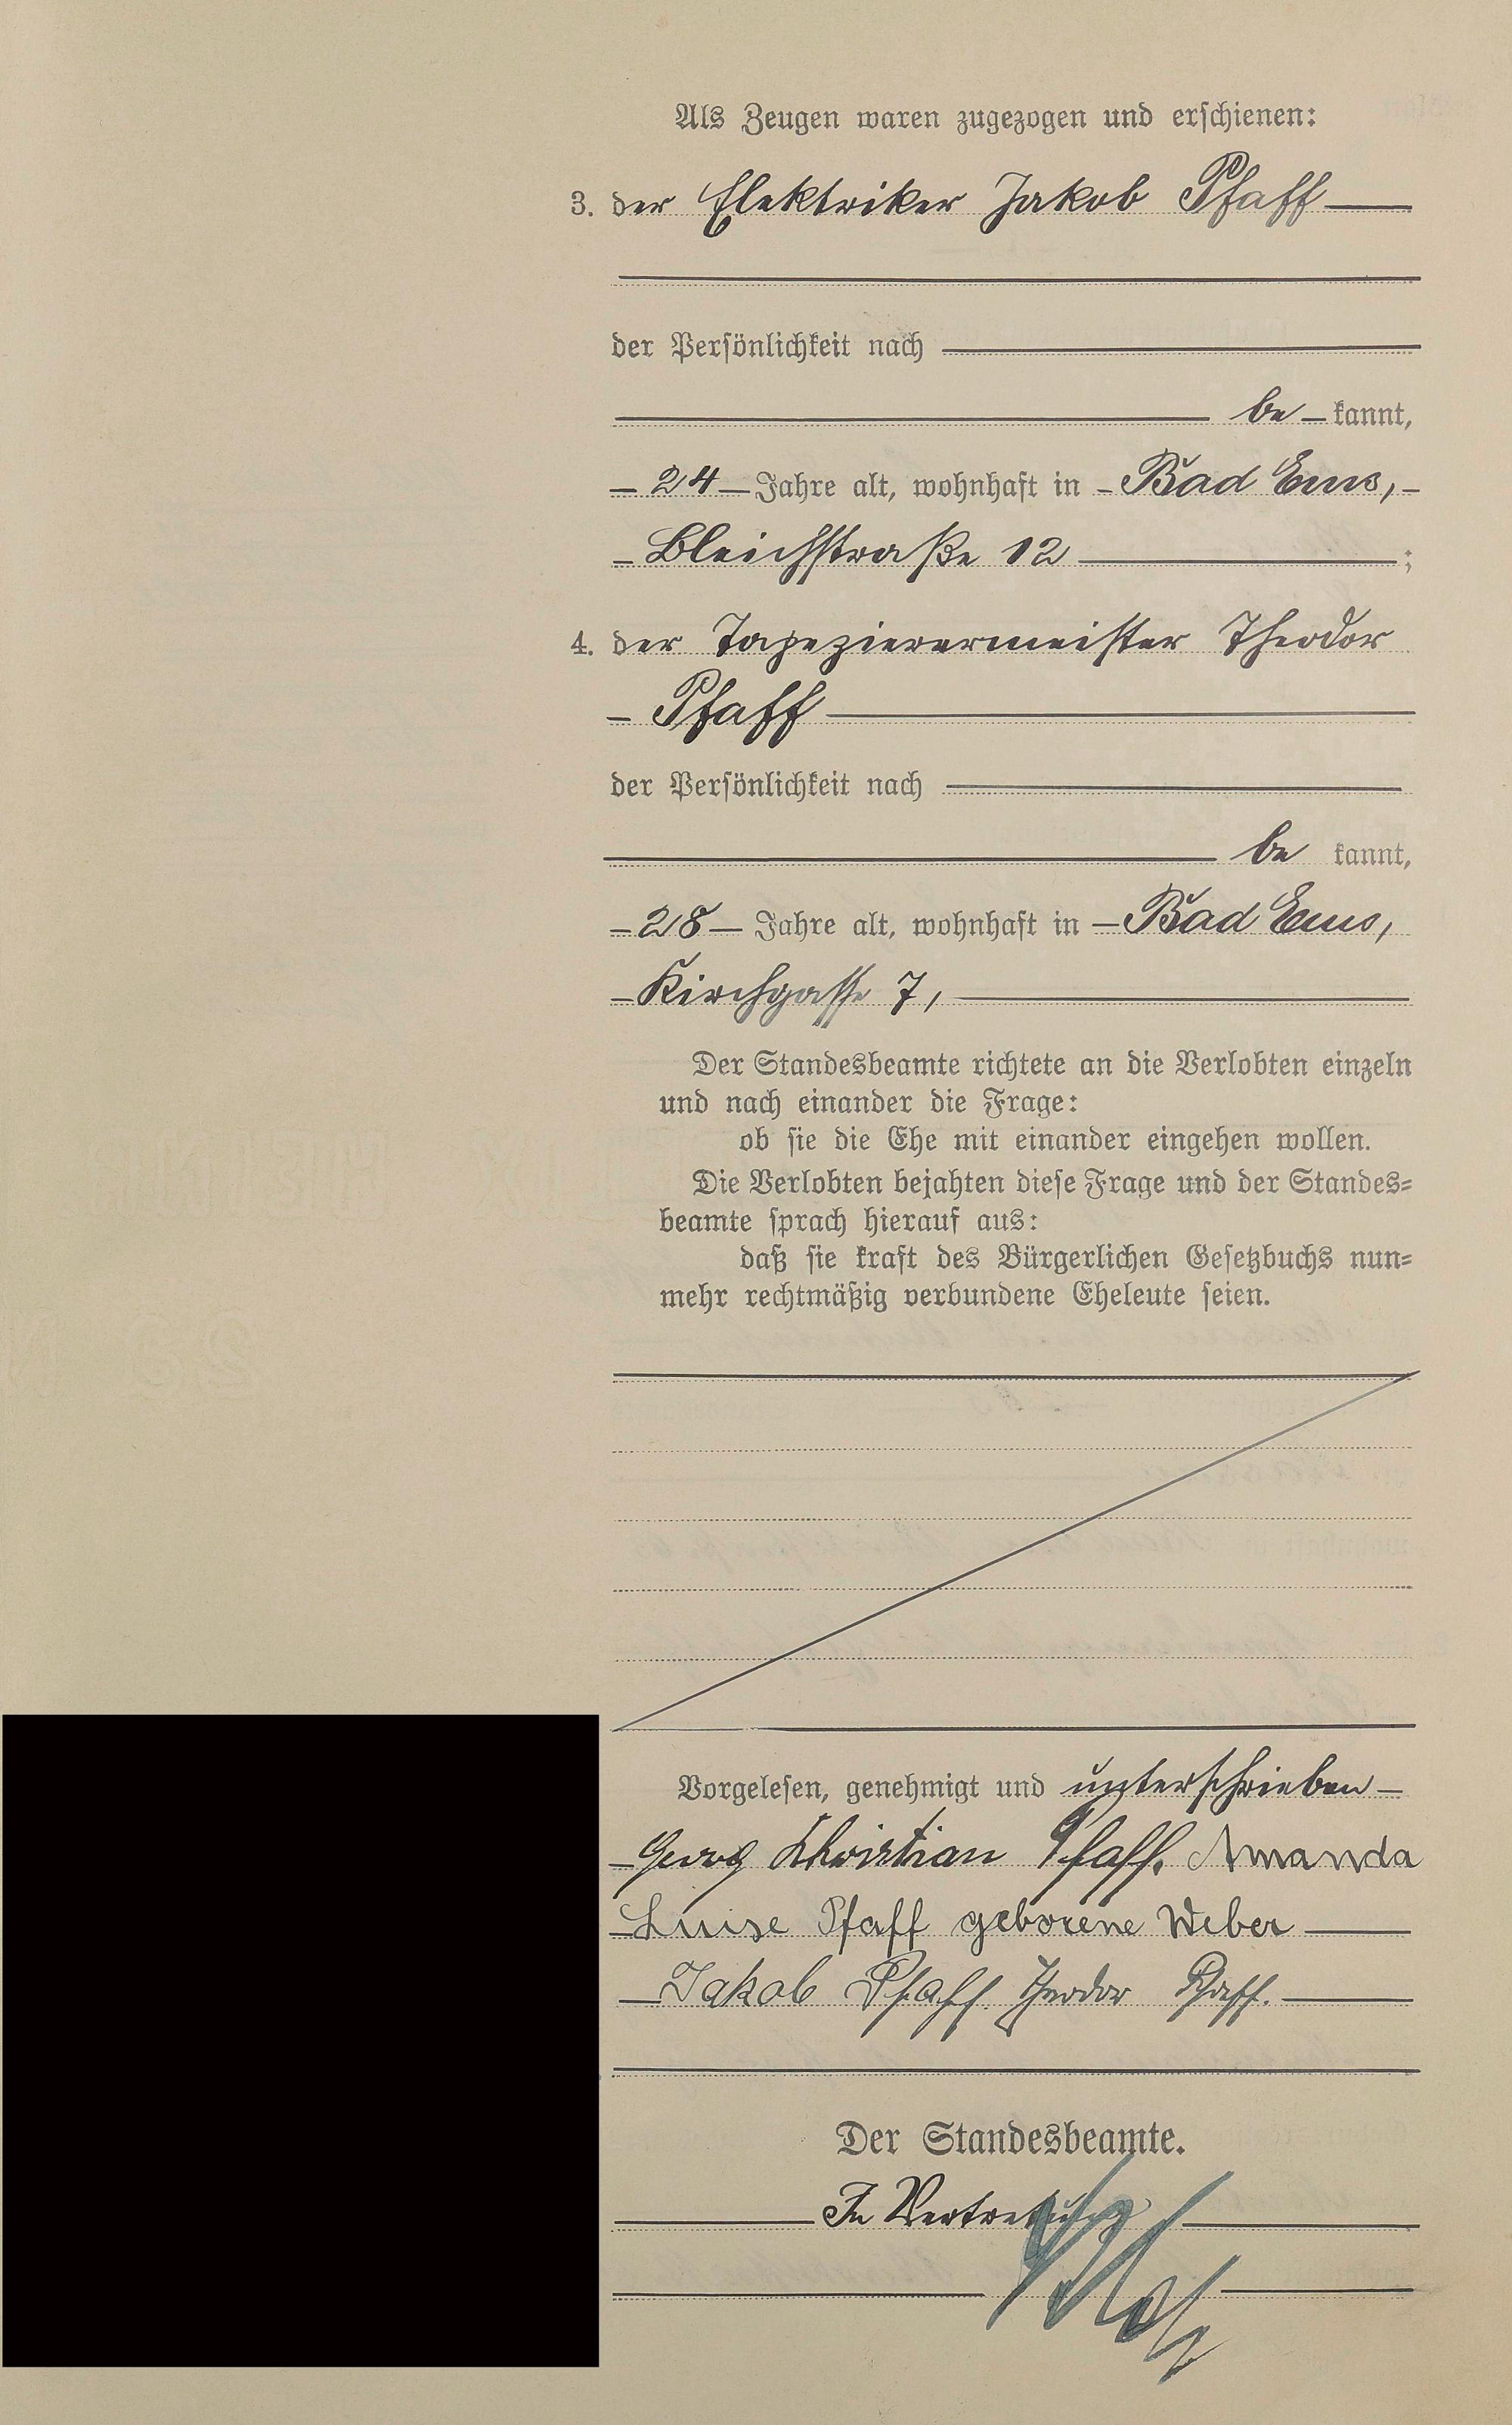 Als Zeugen waren zugezogen und erschienen:
3. der Elektriker Jakob Pfaff
der Persönlichkeit nach
be kannt,
24 Jahre alt, wohnhaft in Bad Ems,
Bleichstraße 12 ;
4. der Tapezierermeister Theodor
Pfaff
der Persönlichkeit nach
be kannt,
28 Jahre alt, wohnhaft in Bad Ems,
Kirchgasse 7,
Der Standesbeamte richtete an die Verlobten einzeln
und nach einander die Frage:
ob sie die Ehe mit einander eingehen wollen.
Die Verlobten bejahten diese Frage und der Standes=
beamte sprach hierauf aus:
daß sie kraft des Bürgerlichen Gesetzbuchs nun=
mehr rechtmäßig verbundene Eheleute seien.
Vorgelesen, genehmigt und unterschrieben
Georg Christian Pfaff. Amanda
Luise Pfaff geborene Weber
Jakob Pfaff. Theodor Pfaff.
Der Standesbeamte.
In Vertretung